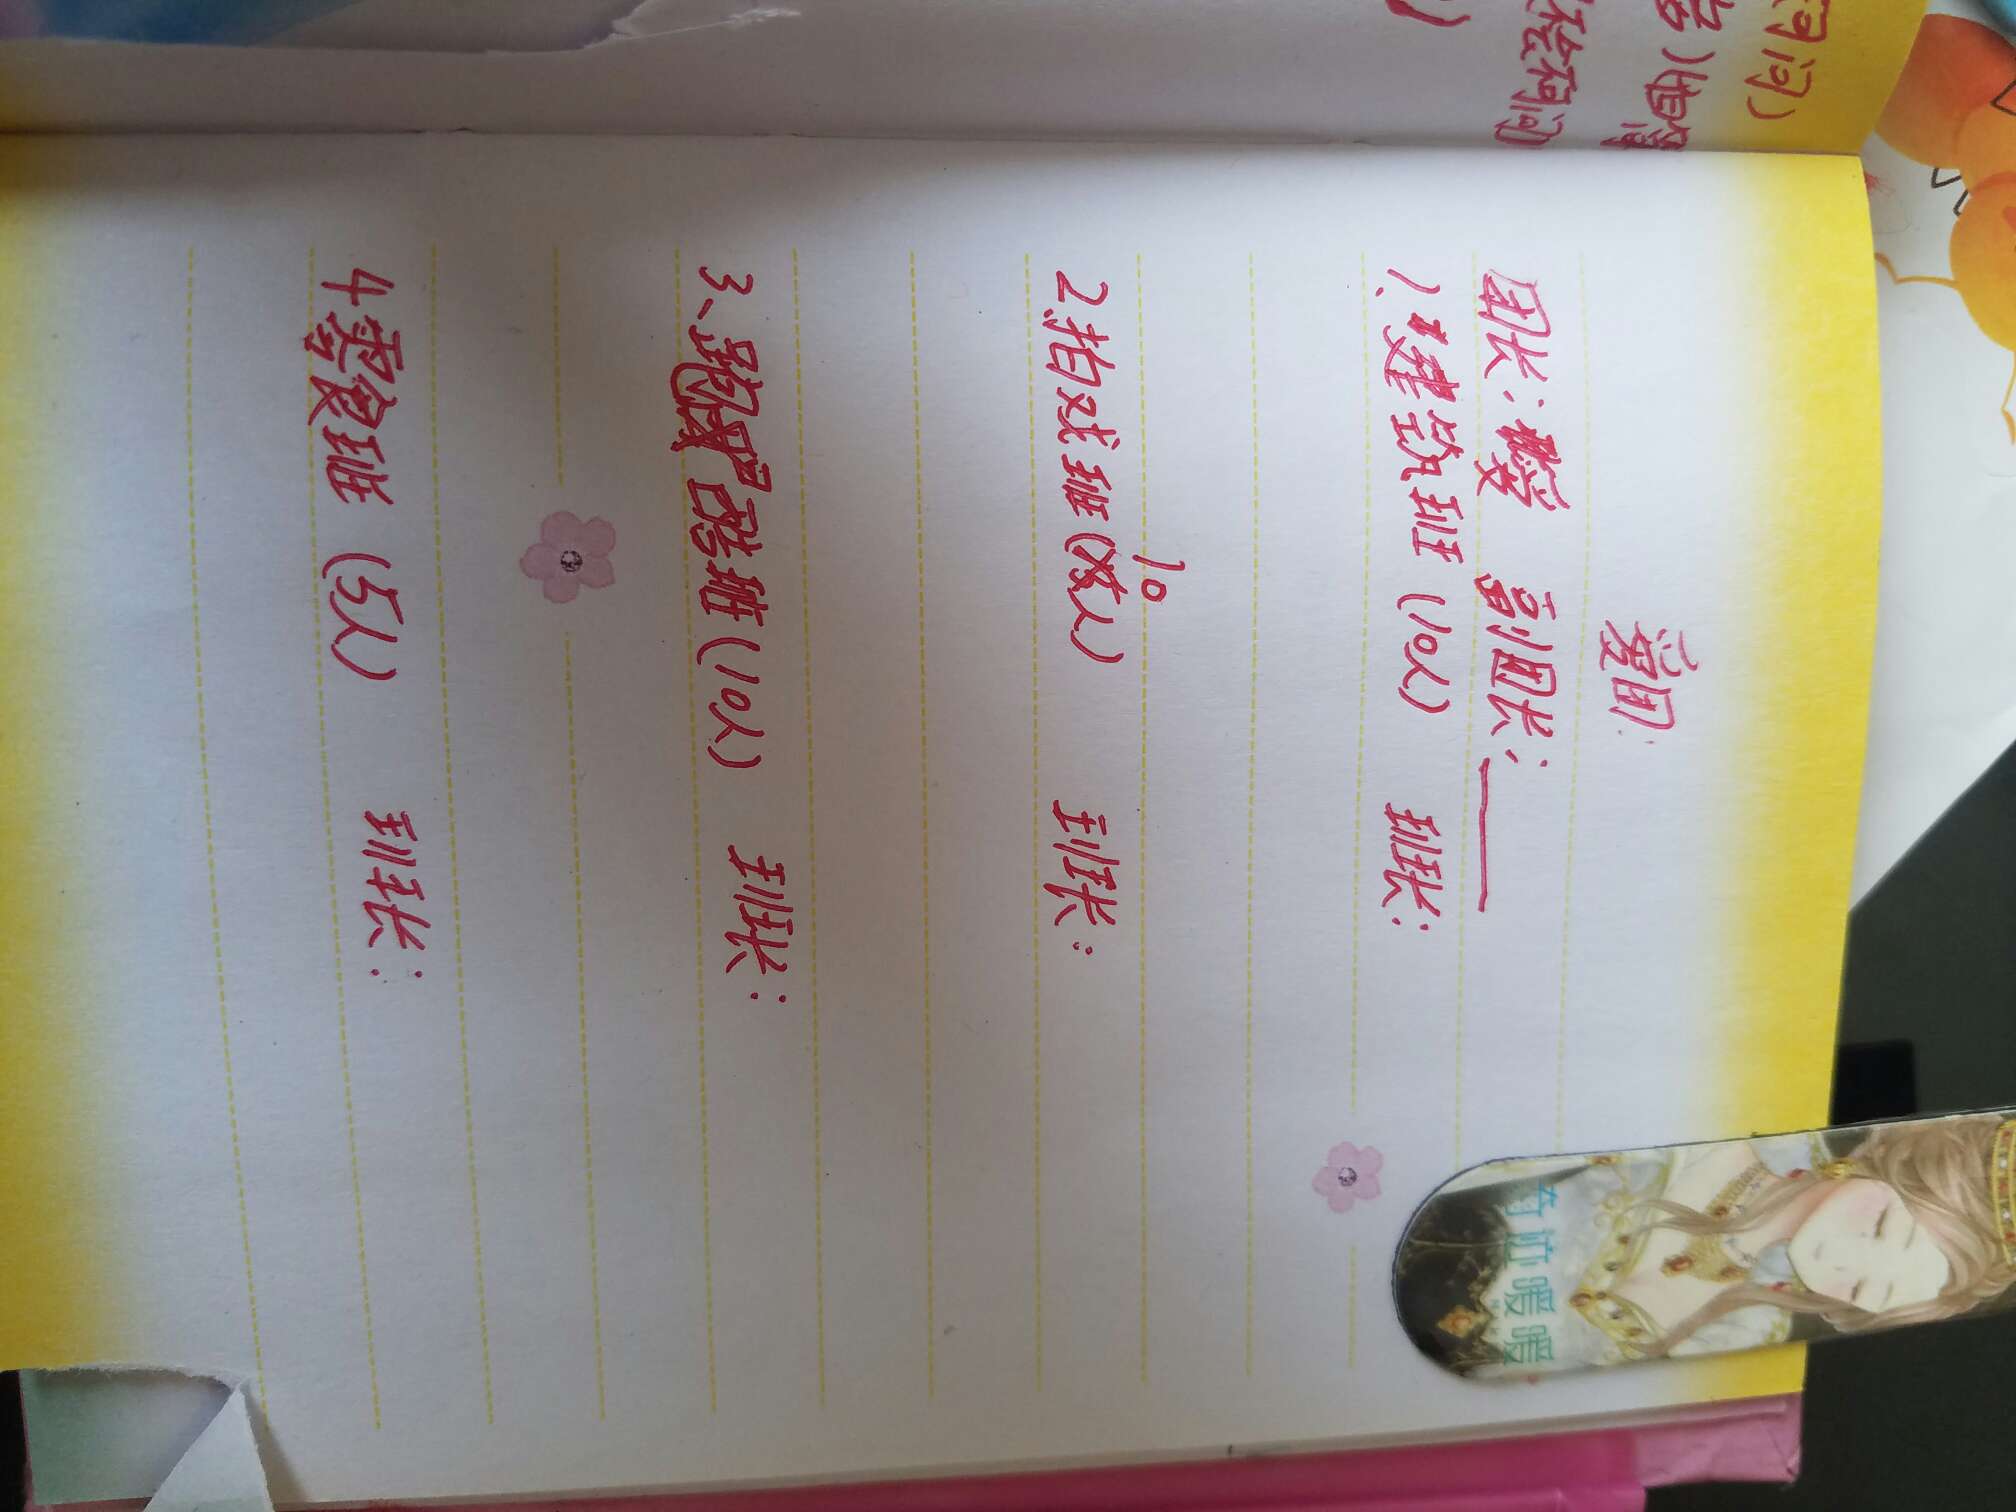 爱团:
团长: 副团长:
1、建筑班(10人) 班长:
2.拍戏班(10人) 班长:
3、跑酷班(10人) 班长:
4零食班(5人) 班长:
奇迹暖暖